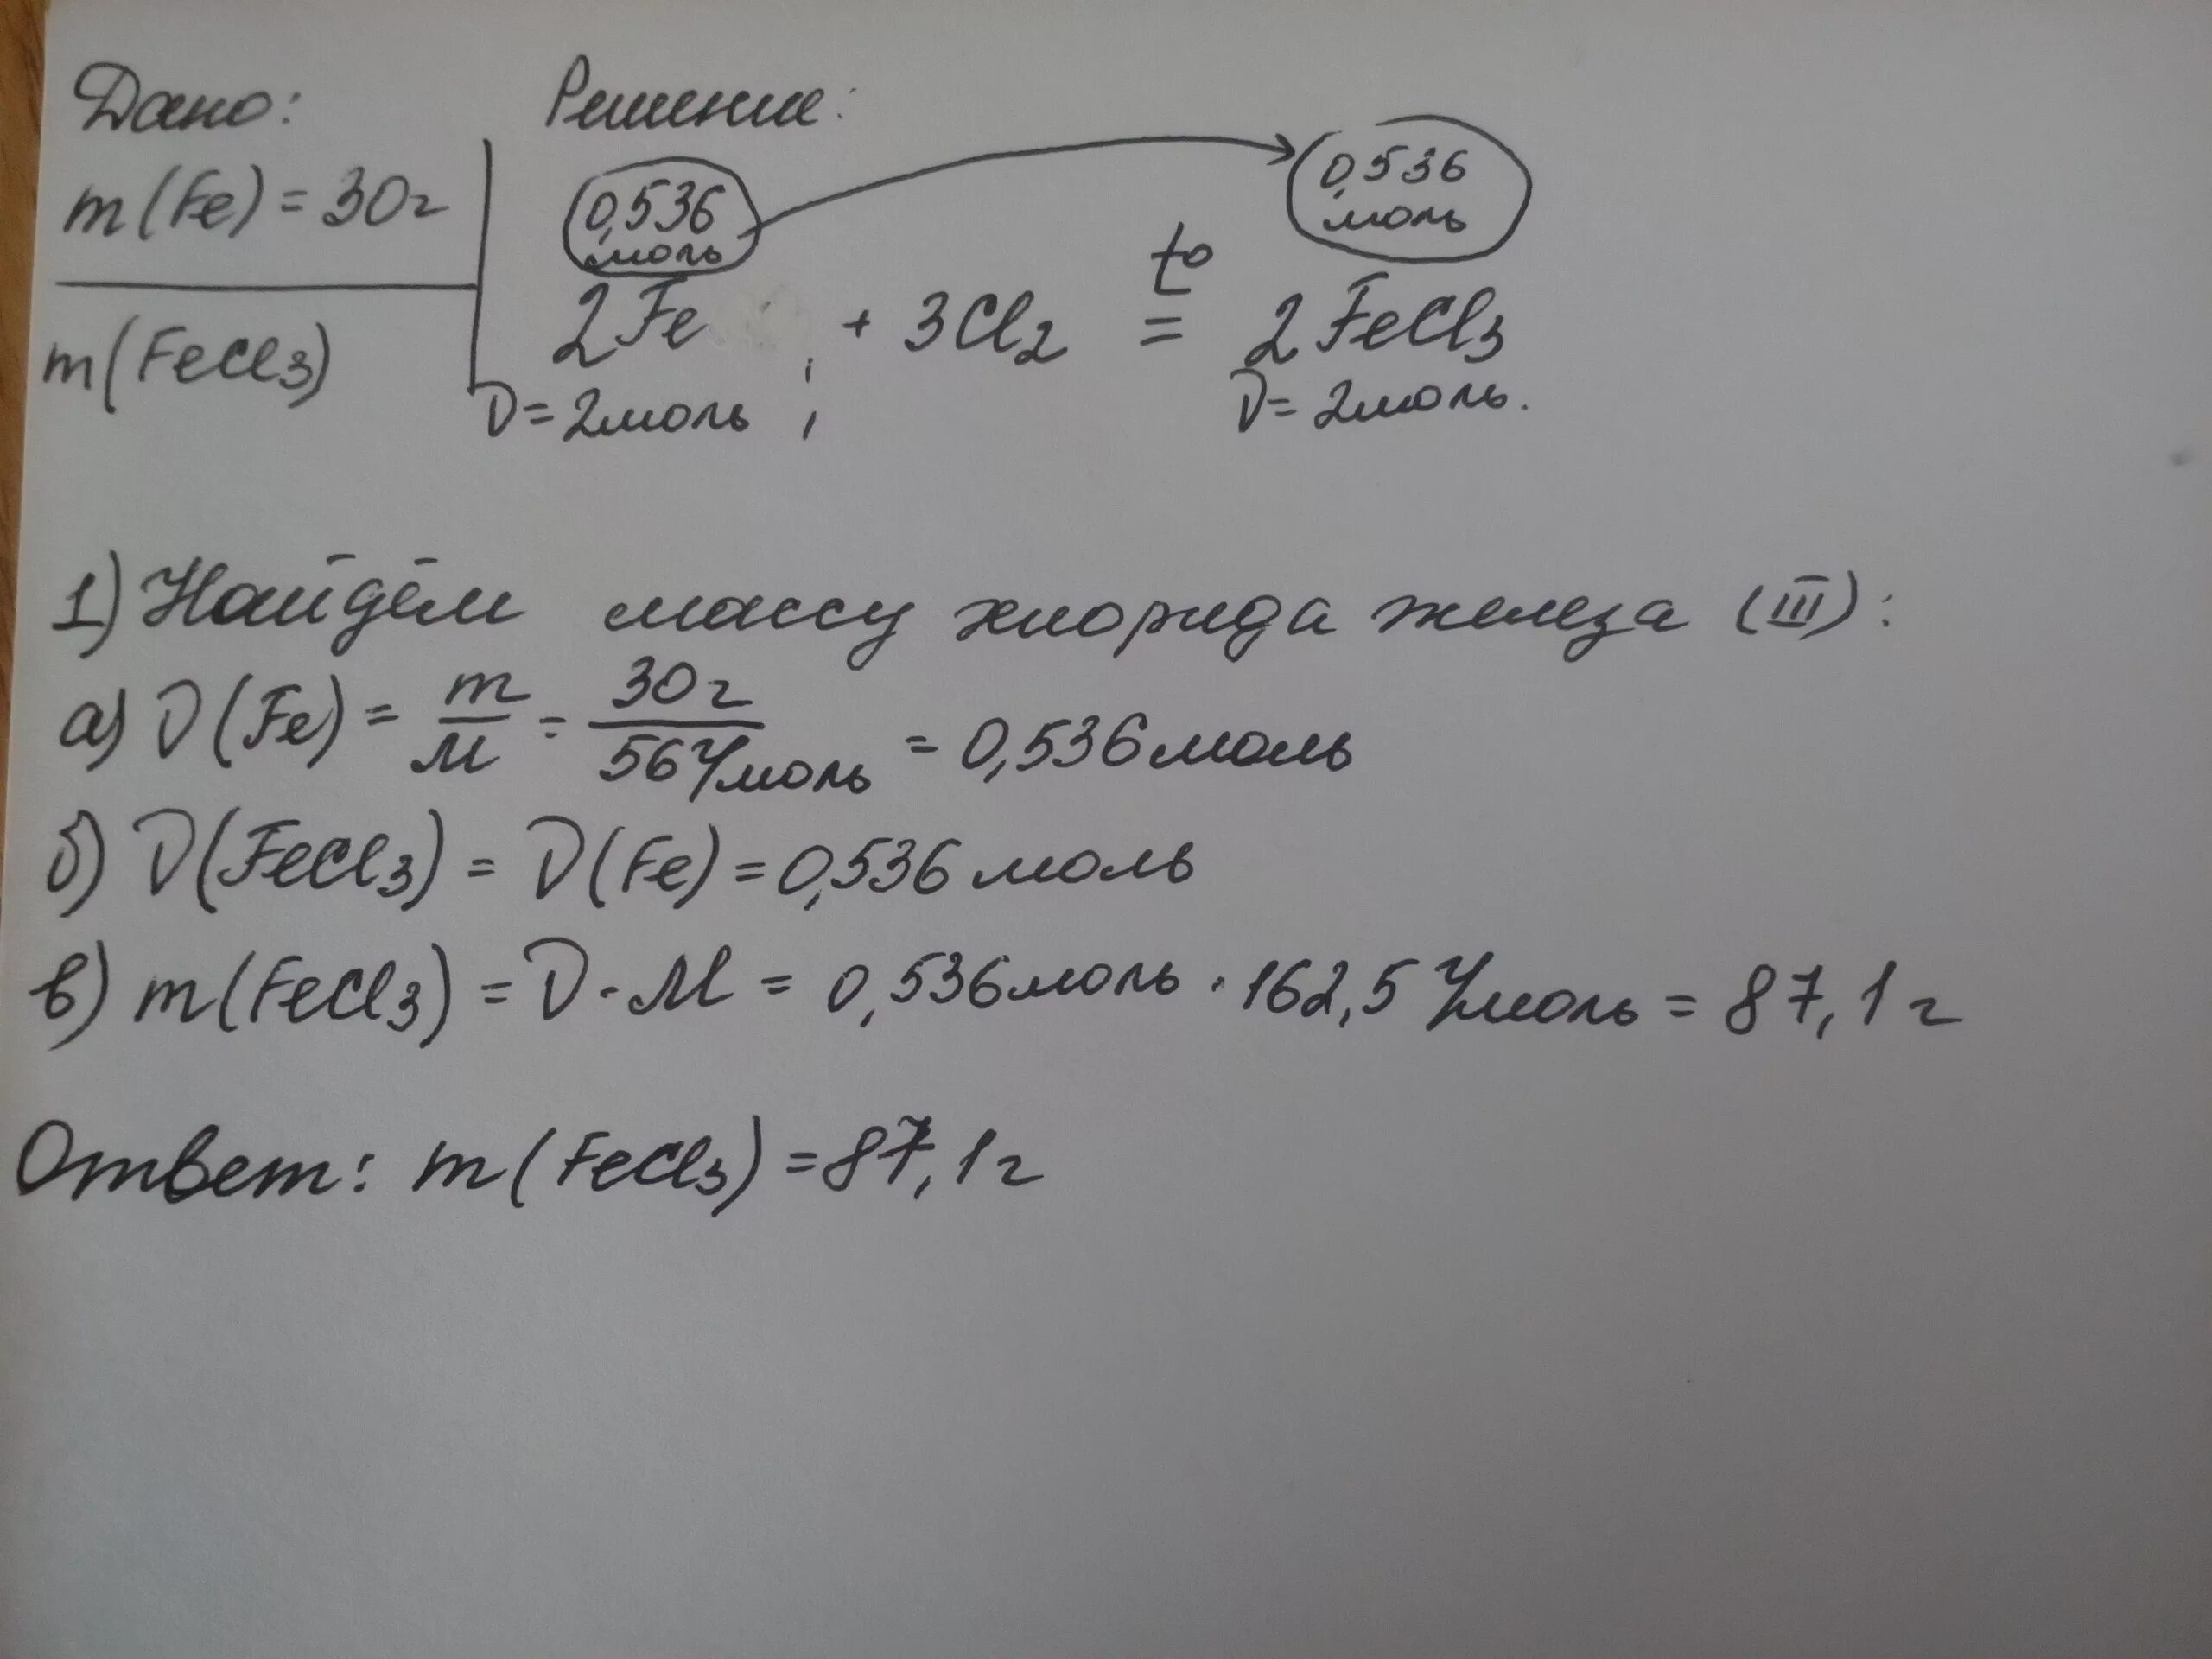 Дано:
m(Fe) = 30г
m(FeCl₃)
Решение:
0,536
моль
0,536
моль
2Fe + 3Cl₂ t° = 2FeCl₃
ν = 2моль ν = 2моль.
1) Найдём массу хлорида железа (III):
а) ν(Fe) = m/M = 30г/56г/моль = 0,536 моль
б) ν(FeCl₃) = ν(Fe) = 0,536 моль
в) m(FeCl₃) = ν · M = 0,536моль · 162,5 г/моль = 87,1 г
Ответ: m(FeCl₃) = 87,1г